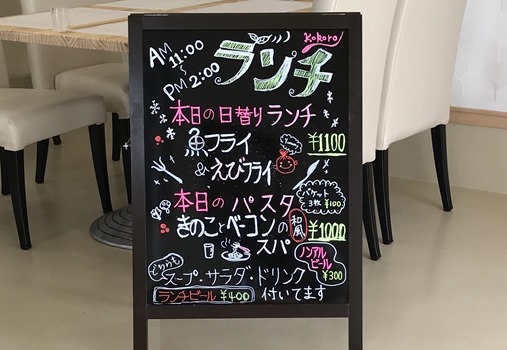 AM 11:00
PM 2:00
ランチ
Kokoro
本日の日替りランチ
魚フライ
&えびフライ
¥1100
本日のパスタ
バゲット
3枚 ¥100
きのことベーコンの
和風
スパ
¥1000
ノンアル
ビール
¥300
どちらも
スープ・サラダ・ドリンク
付いてます
ランチビール ¥400